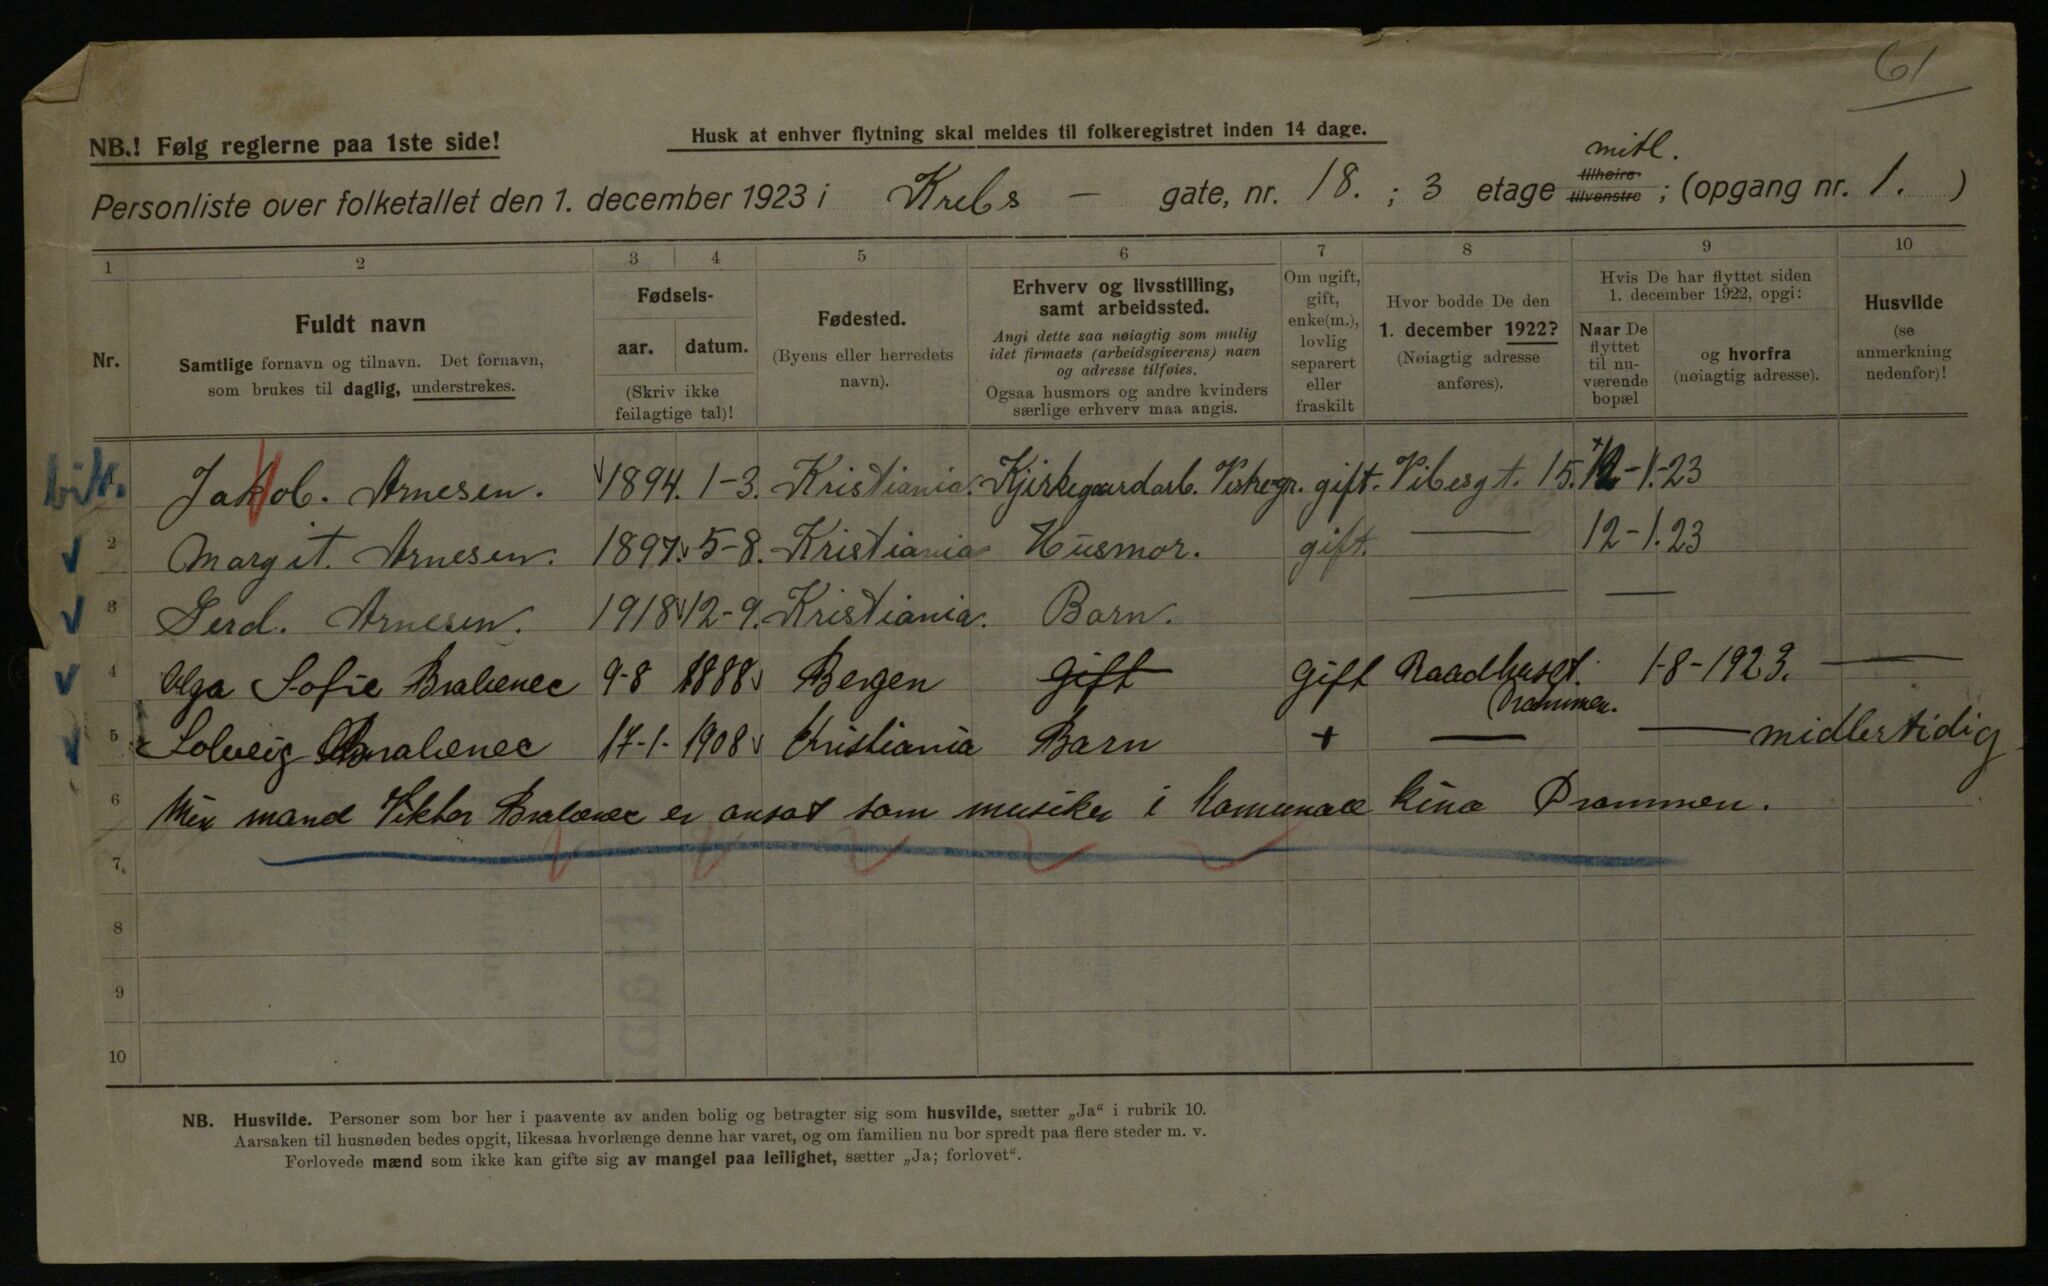 61
NB.! Følg reglerne paa 1ste side!
Husk at enhver flytning skal meldes til folkeregistret inden 14 dage.
mitl.
Personliste over folketallet den 1. december 1923 i Krebs — gate, nr. 18. ; 3 etage tilhøire tilvenstre ; (opgang nr. 1. )
1 2 3 4 5 6 7 8 9 10
Nr.
Fuldt navn
Samtlige fornavn og tilnavn. Det fornavn,
som brukes til daglig, understrekes.
Fødsels-
aar. datum.
(Skriv ikke
feilagtige tal)!
Fødested.
(Byens eller herredets
navn).
Erhverv og livsstilling,
samt arbeidssted.
Angi dette saa nøiagtig som mulig
idet firmaets (arbeidsgiverens) navn
og adresse tilføies.
Ogsaa husmors og andre kvinders
særlige erhverv maa angis.
Om ugift,
gift,
enke(m.),
lovlig
separert
eller
fraskilt
Hvor bodde De den
1. december 1922?
(Nøiagtig adresse
anføres).
Hvis De har flyttet siden
1. december 1922, opgi:
Naar De
flyttet
til nu-
værende
bopæl
og hvorfra
(nøiagtig adresse).
Husvilde
(se
anmerkning
nedenfor)!
Jakob. Arnesen. 1894. 1-3. Kristiania. Kjirkegaardarb. gift. Vibesgt. 15. 12-1.-23
2 Margit. Arnesen. 1897. 5-8. Kristiania Husmor. gift. — 12-1.23
3 Gerd. Arnesen. 1918 12-9. Kristiania. Barn. — —
4 Olga Sofie Brabenec 9-8 1888 Bergen gift Gift Raadhuset. 1-8-1923. —
Drammen.
5 Solveig Brabenec 17-1- 1908 Kristiania Barn + — — midlertidig
6 Min mand Viktor Brabenec er ansat som musiker i Komunale kino Drammen.
7
8
9
10
NB. Husvilde. Personer som bor her i paavente av anden bolig og betragter sig som husvilde, sætter „Ja“ i rubrik 10.
Aarsaken til husnøden bedes opgit, likesaa hvorlænge denne har varet, og om familien nu bor spredt paa flere steder m. v.
Forlovede mænd som ikke kan gifte sig av mangel paa leilighet, sætter „Ja; forlovet“.